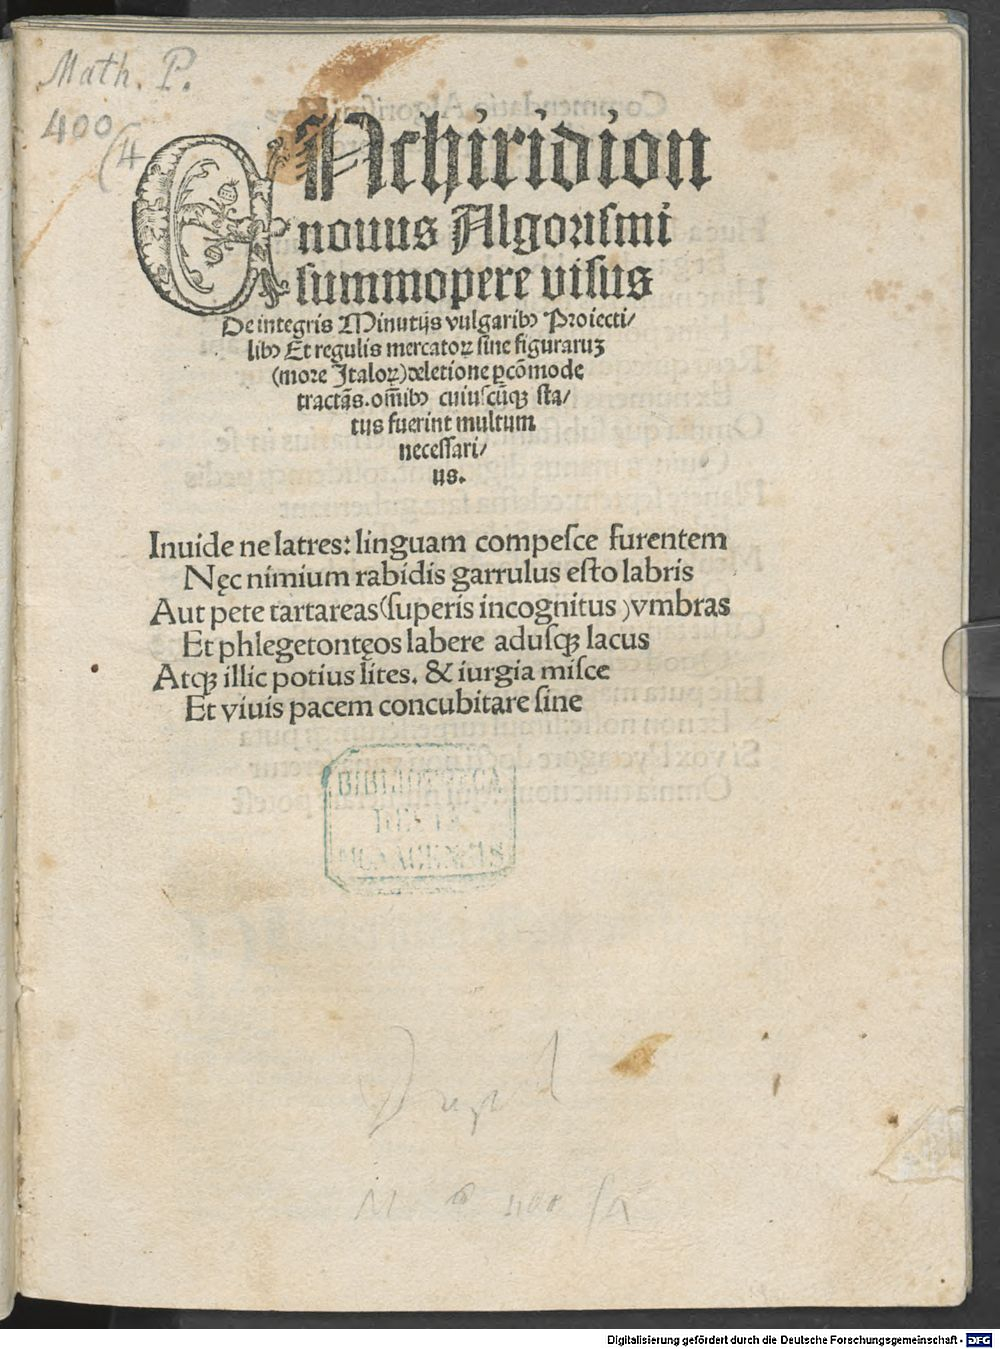 Math. P.
400
(4
ENchiridion
nouus Algorismi
summopere visus
De integris Minutijs vulgaribꝰ Proiecti/
libꝰ Et regulis mercatoꝝ sine figuraruꝫ
(more Italoꝝ) deletione ꝑcōmode
tractās. oīnibꝰ cuiuscūqꝫ sta/
tus fuerint multum
necessari/
us.
Inuide ne latres: linguam compesce furentem
Nęc nimium rabidis garrulus esto labris
Aut pete tartareas (superis incognitus) vmbras
Et phlegetontęos labere adusqꝫ lacus
Atqꝫ illic potius lites. & iurgia misce
Et viuis pacem concubitare sine
BIBLIOTHECA
REGIA
MONACENSIS
Dupl
Digitalisierung gefördert durch die Deutsche Forschungsgemeinschaft - DFG